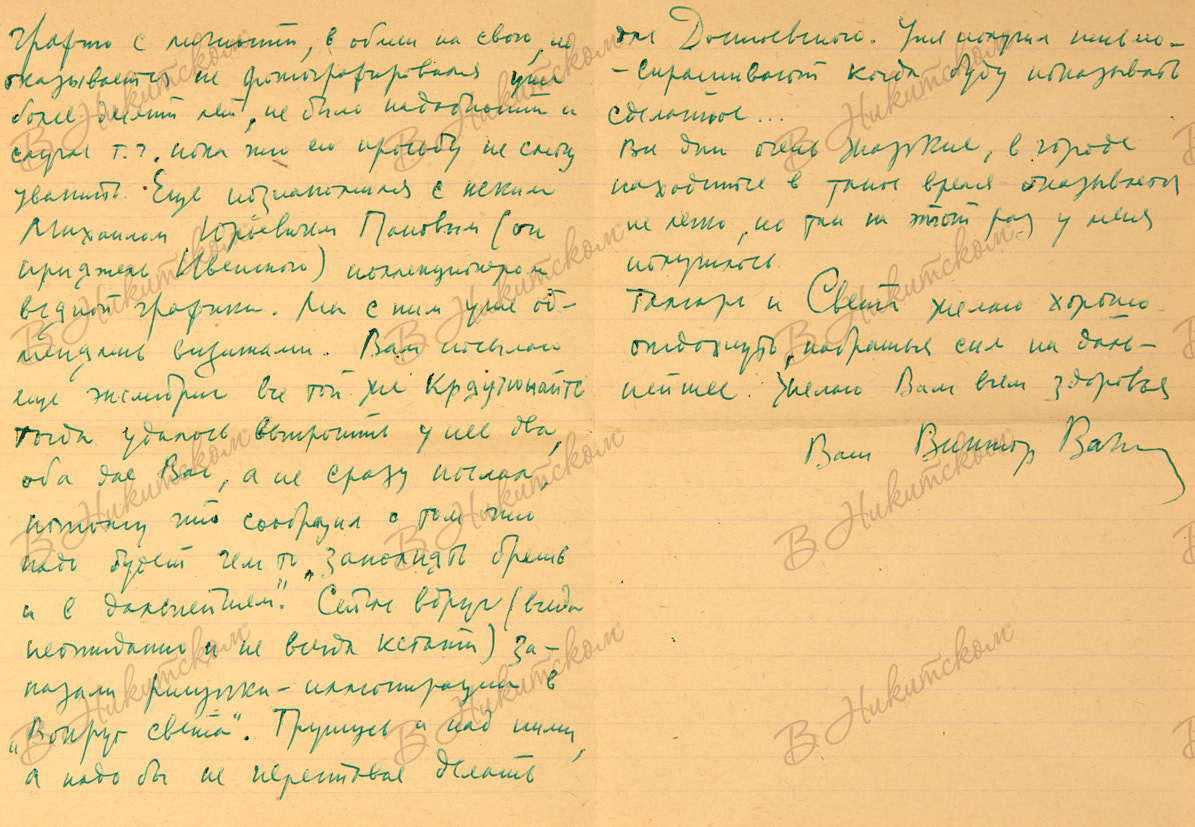 графию с личности, в обмен на свою, но
оказывается не фотографировался уже
более десяти лет, не было надобности и
случая т.ч. пока что его просьбу не смогу
уважить. Еще познакомился с неким
Михаилом Юрьевичем Пановым (он
приджень Ивенского) коллекционером
видной графики. Мы с ним уже об-
менялись визитами. Вам посылаю
еще экслибрис все той же Краутюнайте
тогда удалось выпросить у нее два,
оба для Вас, а не сразу послал,
потому что сообразил о том что
надо будет чем то „заполнять брешь
и в дальнейшем". Сейчас вдруг (всегда
неожиданно и не всегда кстати) за-
казали рисунки-иллюстрации в
„Вокруг света". Тружусь и над ними,
а надо бы не переставая делать
для Достоевского. Уже получил письмо-
-спрашивают когда буду показывать
сделанное...
Все дни очень жаркие, в городе
находиться в такое время оказывается
не легко, но так на этот раз у меня
получилось.
Тамаре и Свете желаю хорошо
отдохнуть, набраться сил на даль-
нейшее. Желаю Вам всем здоровья
Ваш Виктор
В Никитском